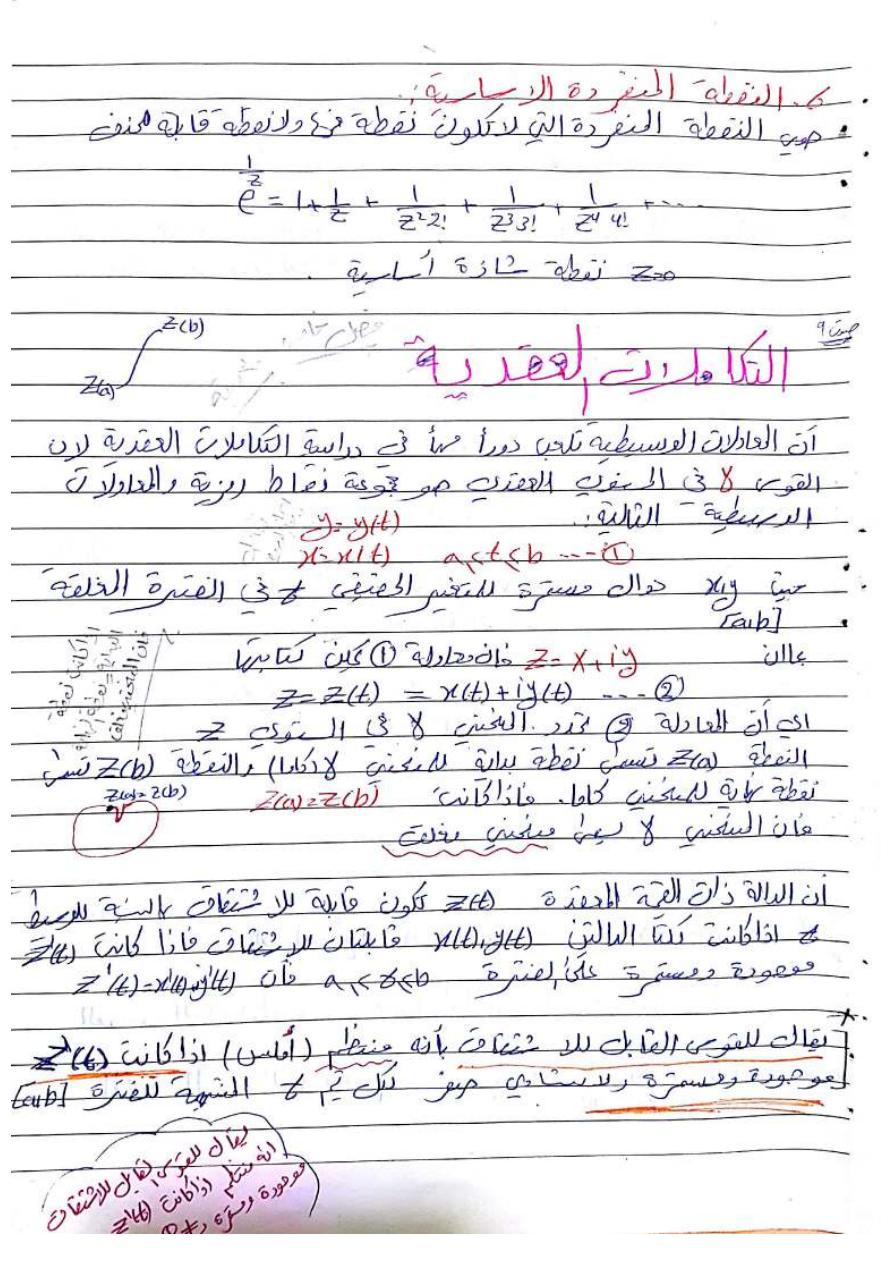 6. النقطة المنفردة الاساسية:.
هي النقطة المنفردة التي لا تكون نقطة فرع ولا نقطة قابلة للحذف
e^{1/z} = 1 + 1/z + 1/(z² 2!) + 1/(z³ 3!) + 1/(z⁴ 4!) + ....
z=0 نقطة شاذة أساسية .
Z(b)
Z(a)
التكاملات العقدية
أن المعادلات الوسيطية تلعب دوراً مهماً في دراسة التكاملات العقدية لان
القوس γ في المستوي العقدي هو مجموعة نقاط والمعادلات
الوسيطية التالية:.
y=y(t)
x=x(t) a≤t≤b ---- ①
حيث x,y دوال مستمرة للمتغير الحقيقي t في الفترة المغلقة
[a,b]
بما ان z = x+iy فان معادلة ① يمكن كتابتها
z = z(t) = x(t)+iy(t) ---- ②
اي أن المعادلة ② تحدد المنحني γ في المستوي z
النقطة z(a) تسمى نقطة بداية للمنحني γ والنقطة z(b) تسمى
نقطة نهاية للمنحني كاما. فاذا كانت z(a)=z(b)
z(a)=z(b)
فان المنحني γ يسمى منحني مغلق
أن الدالة ذات القيمة المعقدة z(t) تكون قابلة للاشتقاق بالنسبة للوسيط
t اذا كانت كلتا الدالتين x(t),y(t) قابلتان للاشتقاق فاذا كانت z'(t)
موجودة ومستمرة على الفترة a≤t≤b فأن z'(t)=x'(t)+y'(t)
يقال للقوس القابل للاشتقاق بأنه منتظم (أملس) اذا كانت z'(t)
موجودة ومستمرة ولا تساوي صفر لكل قيم t المنتمية للفترة [a,b]
يقال للقوس القابل للاشتقاق
انه منتظم اذا كانت z'(t)
موجودة ومستمرة